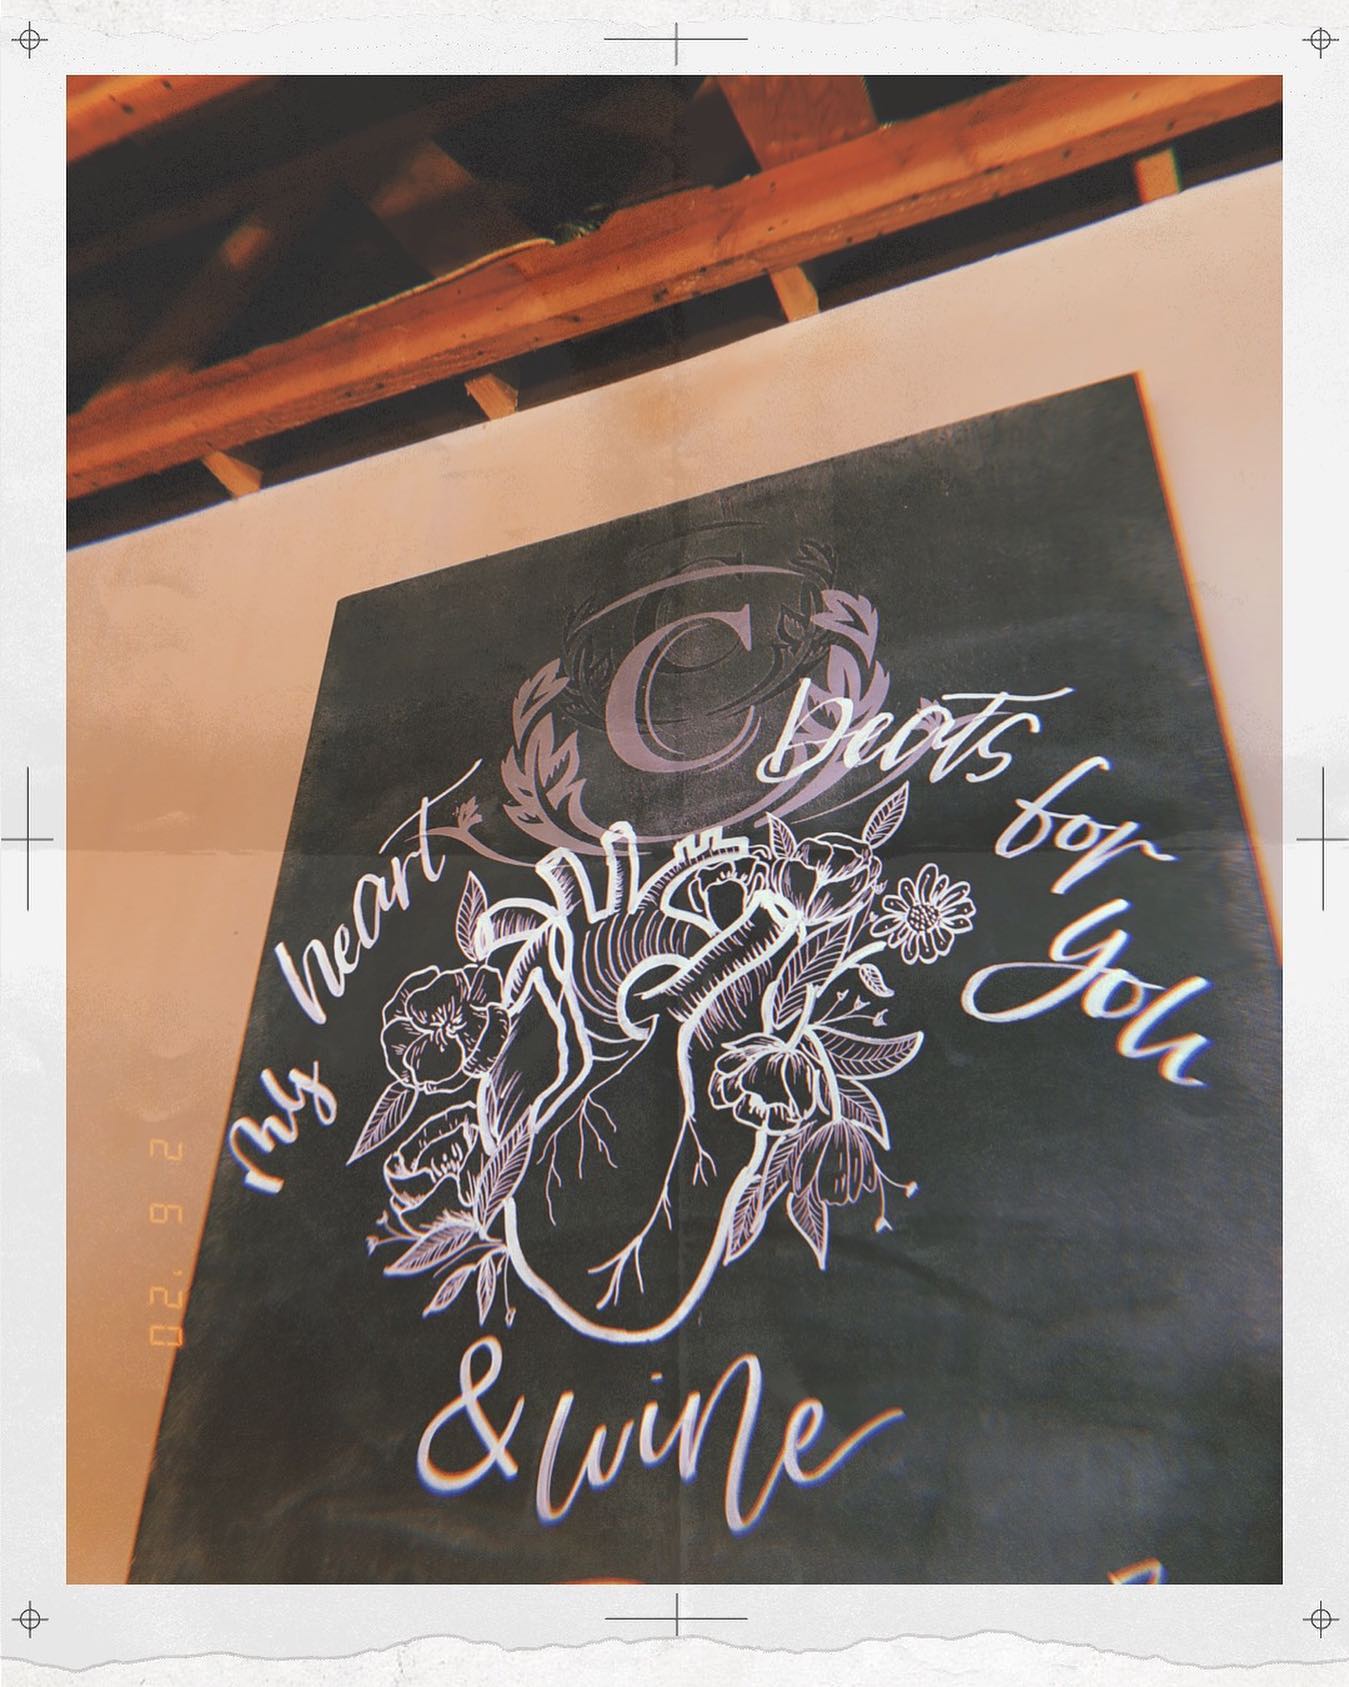 C
My heart Beats for you
& wine
2 6 '20